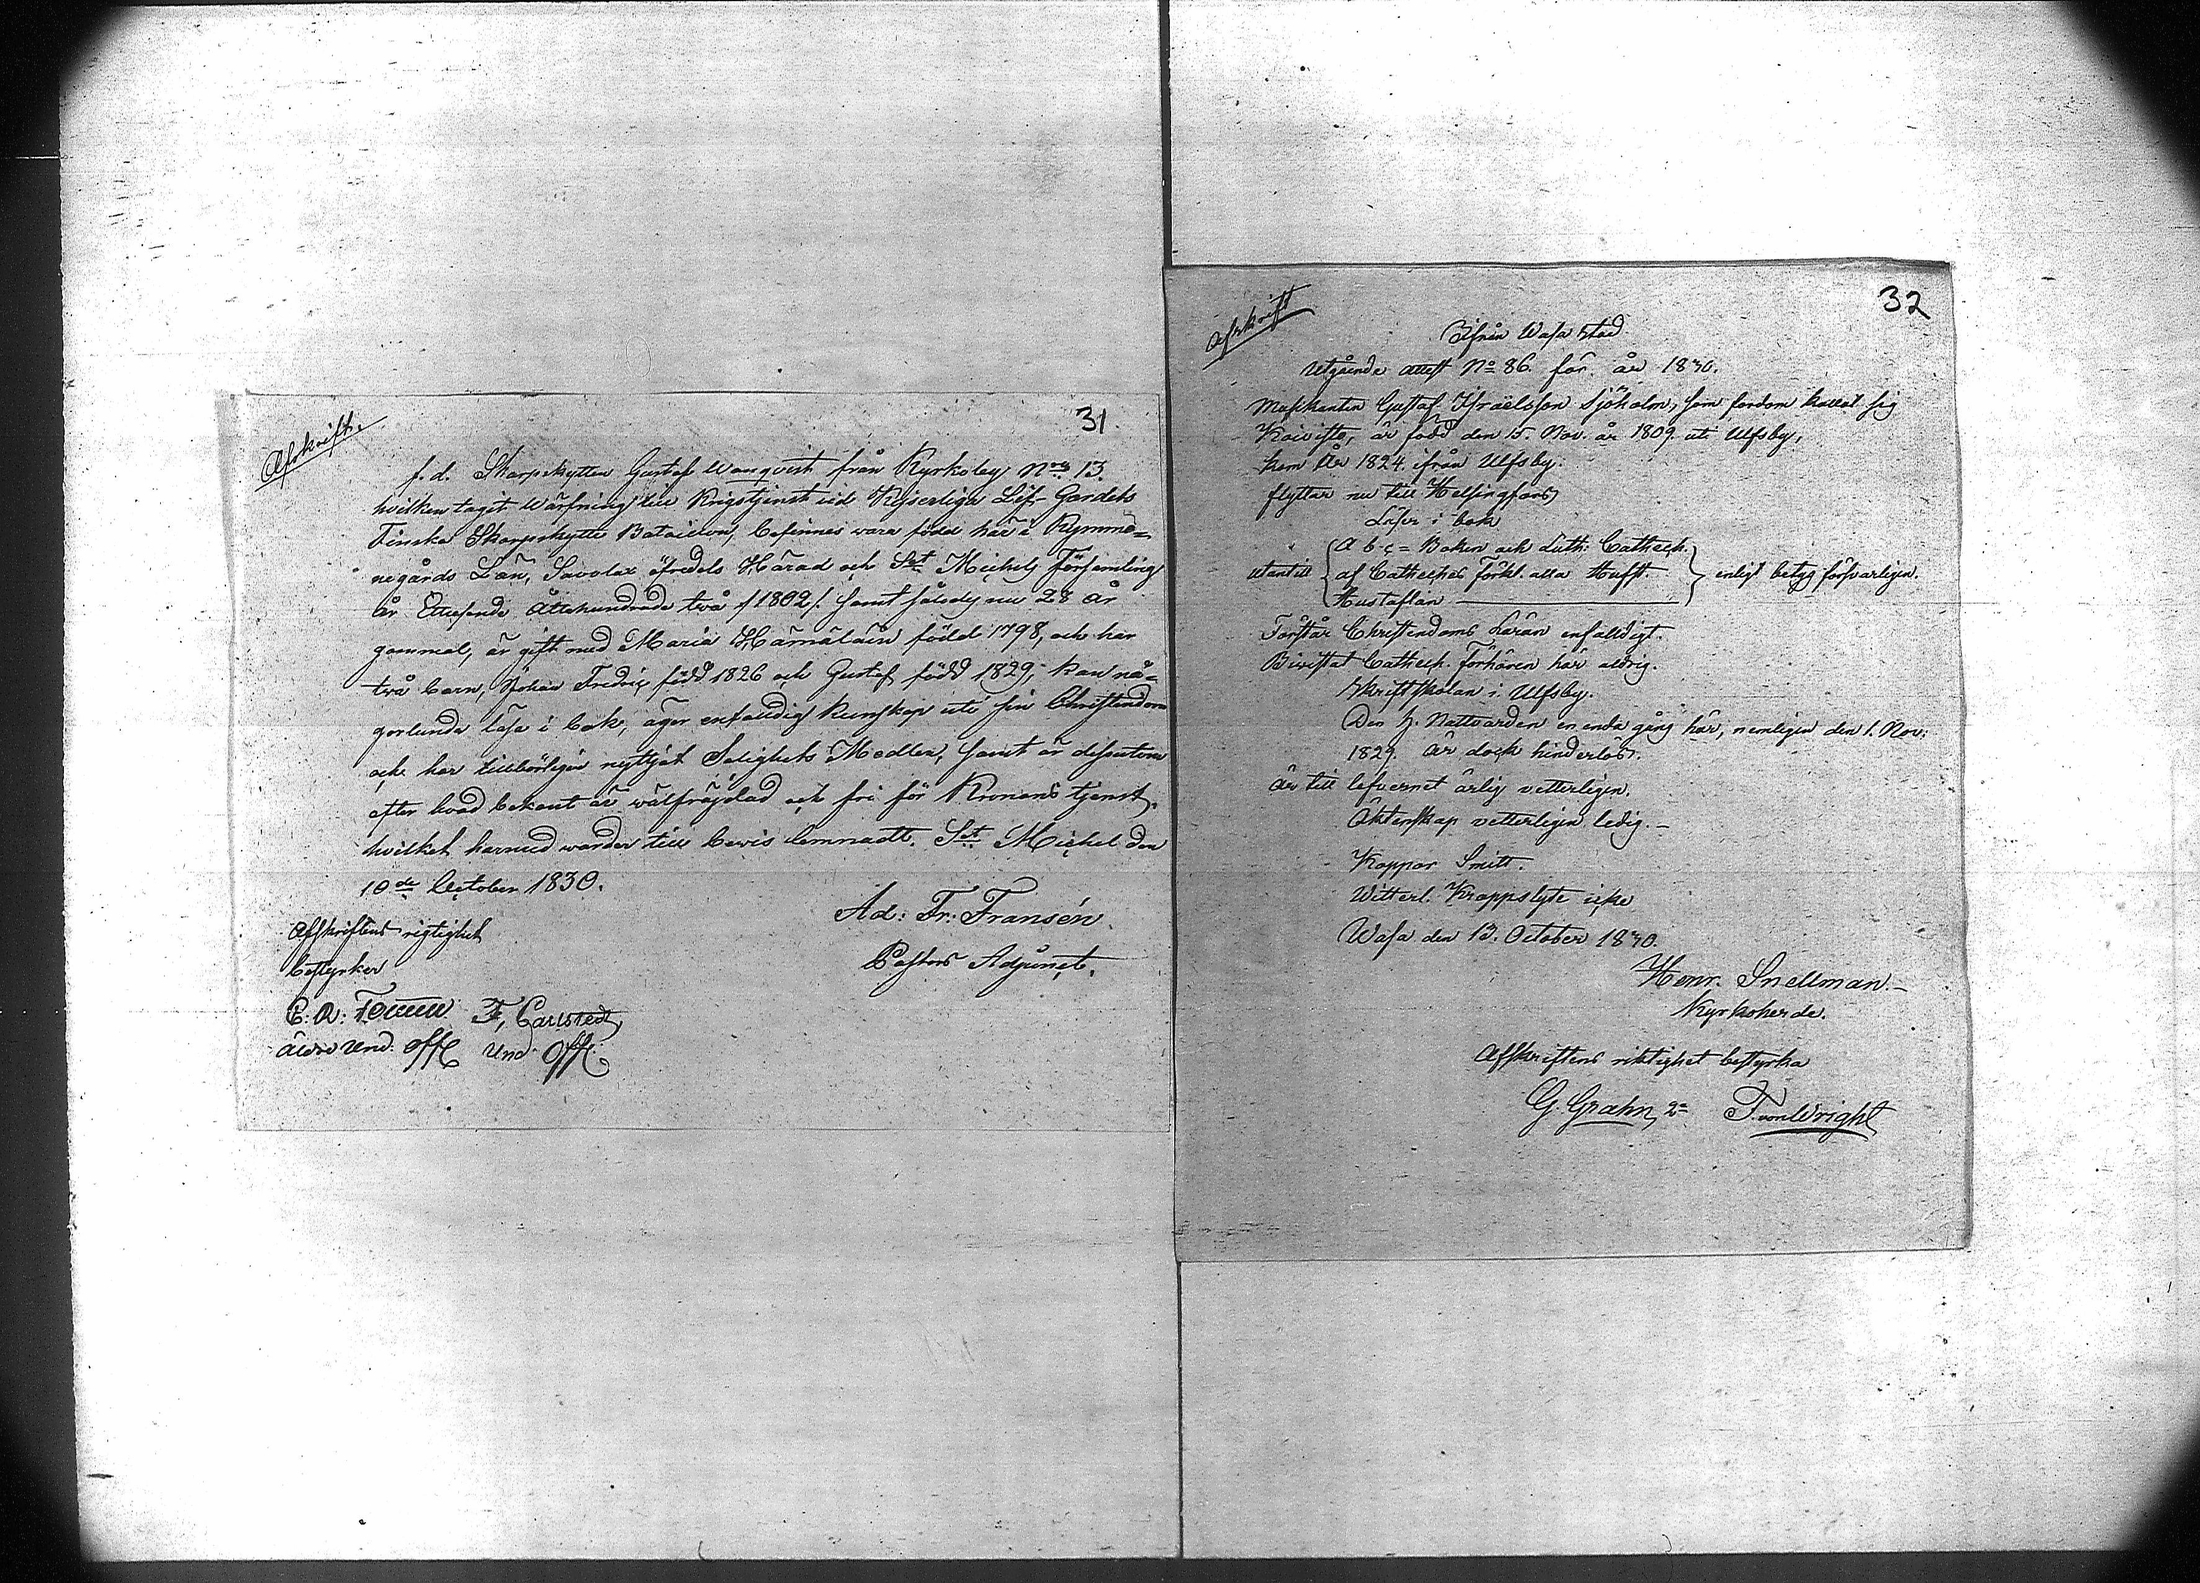 Afskrift.
31.
f. d. Skarpskytten Gustaf Wanqvist från Kyrkoby No 13.
hvilken tagit Wärfning till Krigstjenst vid Kejserliga Lif-Gardets
Finska Skarpskytte Bataillon, befinnes vara född här i Kymme=
negårds Län, Savolax öfredels Härad och S:t Michels Församling
år Ettusende Åttahundrade två /1802/ samt således nu 28 år
gammal, är gift med Maria Hämäläin född 1798, och har
två barn, Johan Fredric född 1826 och Gustaf född 1829; kan nå=
gorlunda läsa i bok, äger enfaldig kunskap uti sin Christendom
och har tillbörligen nyttjat Salighets Medlen, samt är dessutom
efter hvad bekant är wälfräjdad och fri för Kronans tjenst,
hvilket härmed warder till bewis lemnadt. S:t Michel den
10de October 1830.
Ad: Fr: Fransén.
Pastors Adjunct.
Afskriftens rigtighet
bestyrker
C. R: F. Carlstedt,
äldre Und. Offc Und. Offc.
Afskrift
32
Ifrån Wasa stad
Utgående attest No 86. för år 1830.
Musikanten Gustaf Israëlsson Sjöholm, som fordom kallat sig
Koivisto, är född den 15. Nov. år 1809. uti Ulfsby,
kom År 1824. ifrån Ulfsby.
flyttar nu till Helsingfors
Läser i bok
utantill { A b c = Boken och Luth: Cathech.
af Catheches förkl. alla Hufst. } enligt betyg försvarligen.
Hustaflan
Förstår Christendoms Läran enfaldigt.
Biwistat Cathech. förhören här aldrig.
Skriftskolan i Ulfsby.
Den H. Nattvarden en enda gång här, nemligen den 1. Nov:
1829. är dock hinderlös.
Är till lefvernet ärlig vetterligen.
Äktenskap vetterligen ledig.-
Koppor Smitt.
Witterl. Kroppslyte icke
Wasa den 13. October 1830.
Henr. Snellman.-
Kyrkoherde.
Afskriftens riktighet bestyrka
G. Grahn, 2= F. von Wright